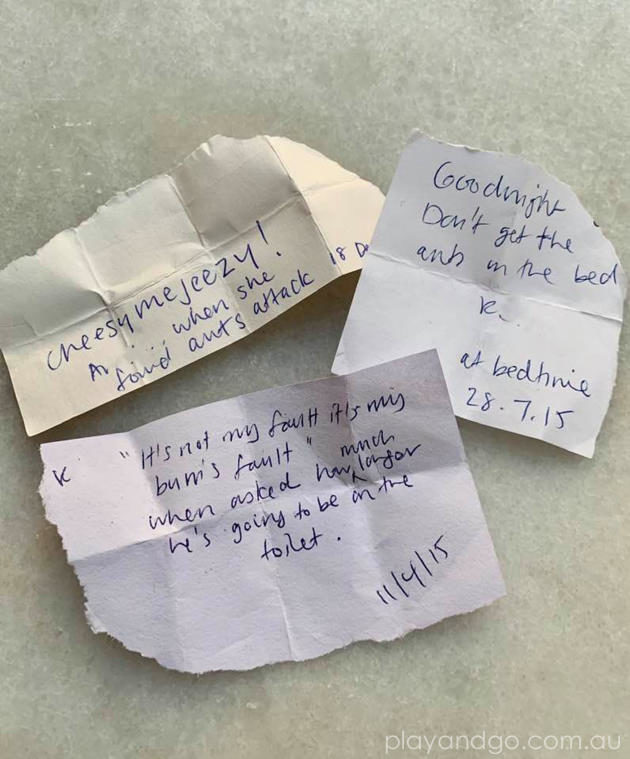 cheesymejeezy!
when she
found ants attack 18 De
Goodnight
Don't get the
ants in the bed
K.
at bedtime
28.7.15
K "It's not my fault it's my
bum's fault"
when asked how much longer
he's going to be on the
toilet.
11/4/15
playandgo.com.au